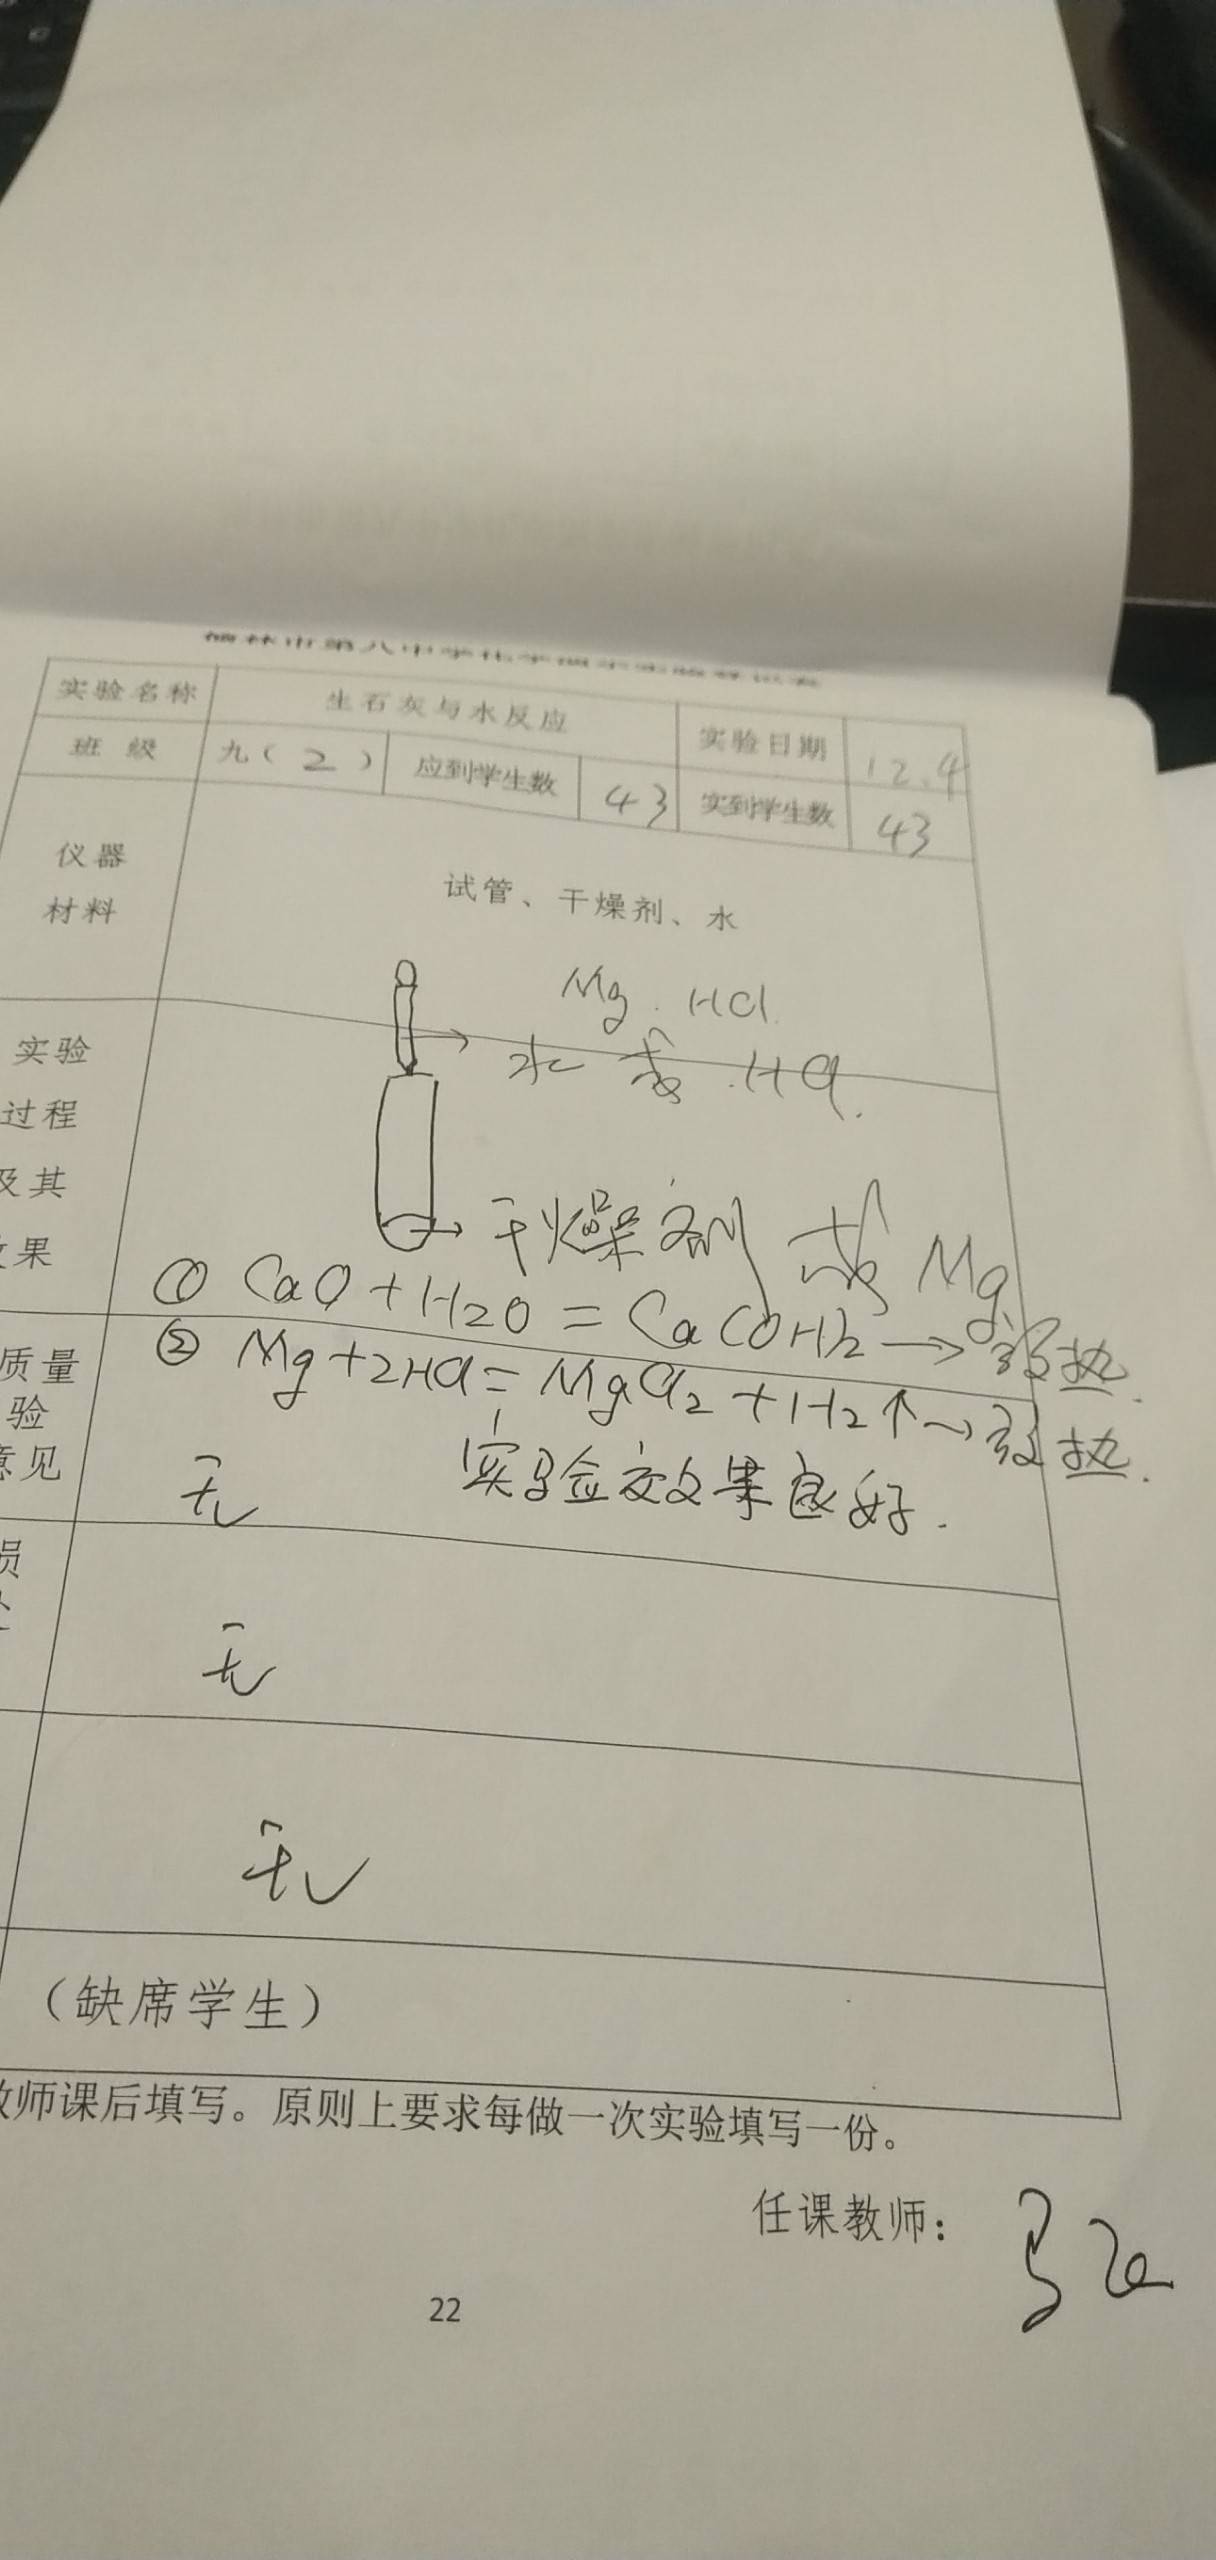 实验名称 生石灰与水反应 实验日期 12.4
班 级 九(2) 应到学生数 43 实到学生数 43
仪器
材料
试管、干燥剂、水
Mg. HCl.
水 或 .HCl.
实验
过程
及其
果
干燥剂 或 Mg
① CaO+H2O=Ca(OH)2→放热.
② Mg+2HCl=MgCl2+H2↑→放热.
实验效果良好.
质量
验
意见
无
损
无
无
(缺席学生)
师课后填写。原则上要求每做一次实验填写一份。
任课教师:
22